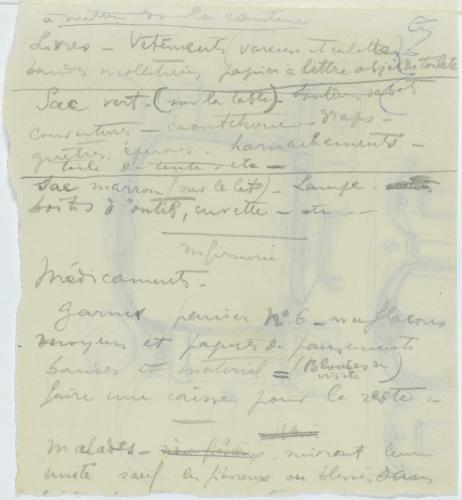 à mettre dans la cantine
Livres - Vêtements (vareuse et culotte)
bandes molletières papier à lettre objets de toilette
Sac vert - (sur la table) - souliers, sabots
couverture - caoutchouc - draps -
guêtres, éperons - harnachements -
toile de tente - etc -
Sac marron (sur le lit) - Lampe -
boîtes d'outils, cuvette - etc - -
Infirmerie
Médicaments -
Garnir panier N° 6 - avec flacons
moyens et paquets de pansements
bandes et matériel = (Blouses de
visite)
faire une caisse pour le reste -
Malades - suivront leur
unité sauf les fiévreux ou blessés dans